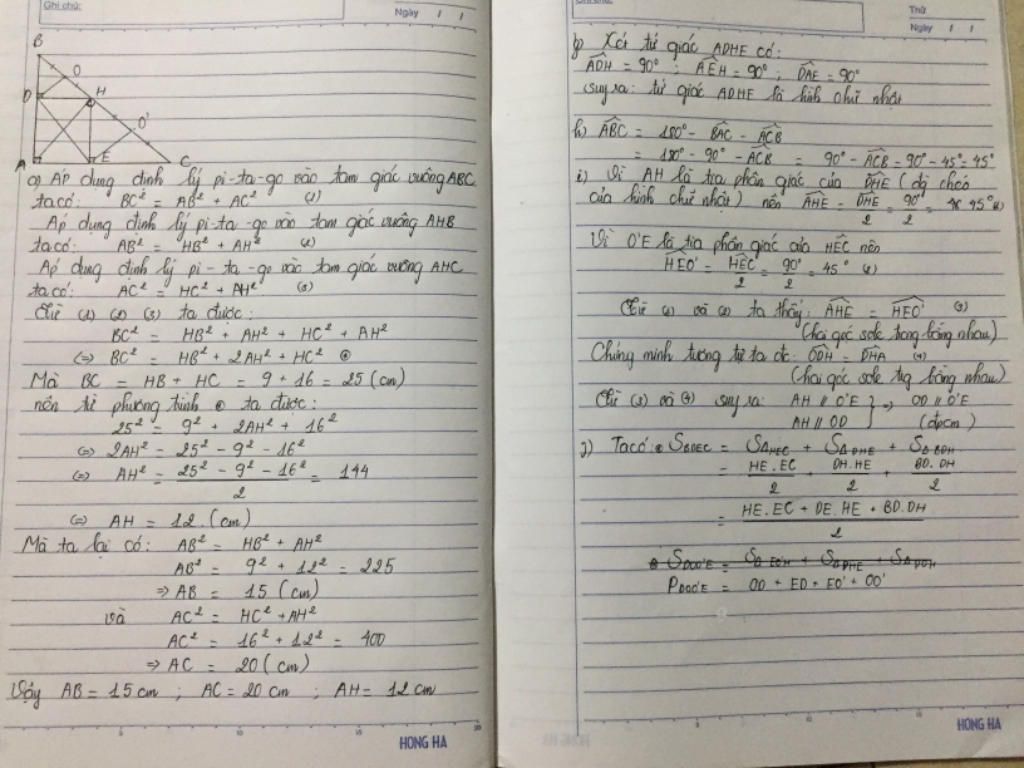 Ghi chú:
Ngày / /
B
O
D
H
O'
A
E
C
a) Áp dụng định lý pi-ta-go vào tam giác vuông ABC
ta có: BC² = AB² + AC² (1)
Áp dụng định lý pi-ta-go vào tam giác vuông AHB
ta có: AB² = HB² + AH² (2)
Áp dụng định lý pi-ta-go vào tam giác vuông AHC
ta có: AC² = HC² + AH² (3)
Từ (1) (2) (3) ta được:
BC² = HB² + AH² + HC² + AH²
(=) BC² = HB² + 2AH² + HC²
Mà BC = HB + HC = 9 + 16 = 25 (cm)
nên từ phương trình ta được:
25² = 9² + 2AH² + 16²
(=) 2AH² = 25² - 9² - 16²
(=) AH² = (25² - 9² - 16²)/2 = 144
(=) AH = 12 (cm)
Mà ta lại có: AB² = HB² + AH²
AB² = 9² + 12² = 225
=> AB = 15 (cm)
và AC² = HC² + AH²
AC² = 16² + 12² = 400
=> AC = 20 (cm)
Vậy AB = 15 cm ; AC = 20 cm ; AH = 12 cm
5 10 15 20
HONG HA
Thứ
Ngày / /
b) Xét tứ giác ADHE có:
ADH = 90° ; AEH = 90° ; DAE = 90°
suy ra: tứ giác ADHE là hình chữ nhật
h) ABC = 180° - BAC - ACB
= 180° - 90° - ACB = 90° - ACB = 90° - 45° = 45°
i) Vì AH là tia phân giác của DHE (đg chéo
của hình chữ nhật) nên AHE = DHE/2 = 90°/2 = 45° (1)
Vì O'E là tia phân giác của HEC nên
HEO' = HEC/2 = 90°/2 = 45° (2)
Từ (1) và (2) ta thấy: AHE = HEO' (3)
(hai góc sole trong bằng nhau)
Chứng minh tương tự ta đc: ODH = DHA (4)
(hai góc sole trg bằng nhau)
Từ (3) và (4) suy ra: AH // O'E } => OD // O'E
AH // OD (đpcm)
j) Ta có: SBDEC = SΔHEC + SΔDHE + SΔBDH
= HE.EC/2 + DH.HE/2 + BD.DH/2
= (HE.EC + DE.HE + BD.DH)/2
PDOO'E = OD + ED + EO' + OO'
HONG HA